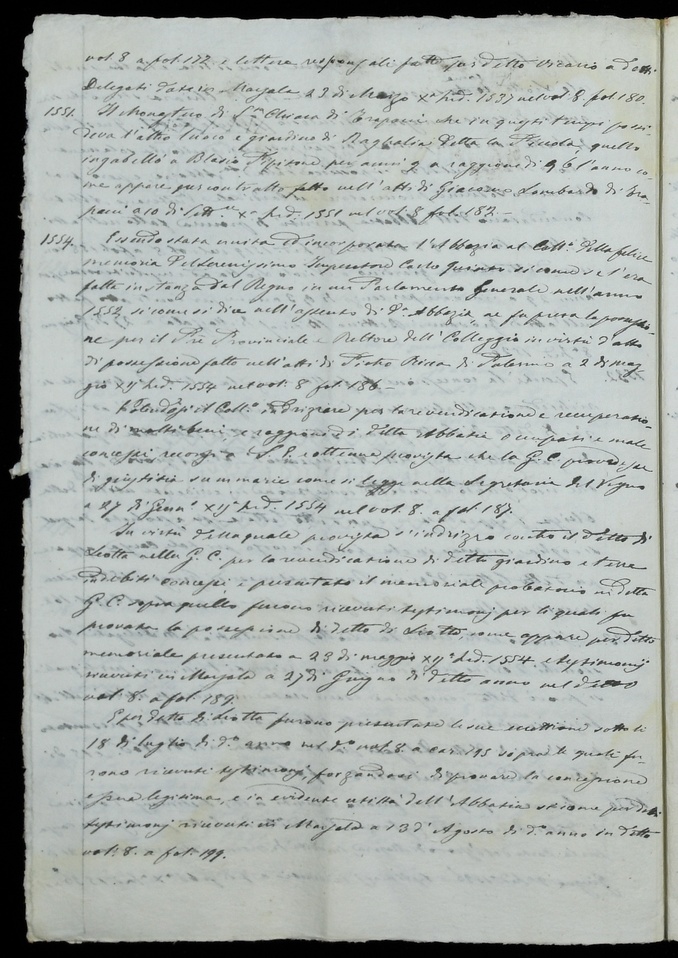 vol. 8. a fol. 172. e lettere responsali fatte per detto Vicario a detti
Delegati date in Marsala 22 di Marzo Xa Ind. 1537 nel vol. 8. fol. 180.
1551. Il Monastero di Sta Chiara di Trapani che in questi tempi possi-
deva l'altro luoco e giardino di Raghalia della quello
ingabellò a Blasio per anni 9 a raggione di 96 l'anno co-
me appare per contratto fatto nell'atti di Giacomo Lombardo di Tra-
pani a 10 di Sett.re Xa Ind. 1551 nel vol. 8 fol. 182.-
1554. Essendo stata unita ed incorporata l'Abbazia al Coll.o della felice
memoria del Serenissimo Imperatore Carlo Quinto si come se l'era
fatta instanza dal Regno in un Parlamento Generale nell'anno
1552. si come si dice nell'assento di d.a Abbazia, ne fu presa la possessio-
ne per il Pre Provinciale e Rettore dell'Colleggio in virtù d'atto
di possessione fatto nell'atti di Pietro Ricca di Palermo a 2 di mag-
gio XIJ Ind. 1554 nel vol. 8 fol. 186.-
Volendosi il Coll.o indrizzare per la revendicatione e recuperatio-
ne di molti beni e raggioni di detta Abbatia occupati e male
concessi recorse a S. E. e ottenne provista che la G. C. provedesse
di giustitia summarie come si legge nella Segretaria del Regno
a 27 di Genn.o XIJ Ind. 1554 nel vol. 8. a fol. 187.
In virtù della quale provista s'indrizzò contro il detto di
Liotta nella G. C. per la revendicatione di detto giardino e terre
indebiti concessi e presentato il memoriale probatorio in detta
G. C. sopra quello furono ricevuti testimonij per li quali fu
provata la possessione di detto di Liotta, come appare per detto
memoriale presentato a 23 di maggio XIJ Ind. 1554. e testimonij
ricevuti in Marsala a 27 di Giugno di detto anno nel detto
vol. 8. a fol. 189.
E per detto di Liotta furono presentate le sue eccettione sotto li
18 di Luglio di d.o anno nel d.o vol. 8. a car. 195 sopra le quali fu-
rono ricevuti testimonij, forzandosi di provare la concessione
essere legitima, e in evidente utilità dell'Abbatia si come per detti
testimonij ricevuti in Marsala a 13 d'Agosto di d.o anno in detto
vol. 8. a fol. 199.